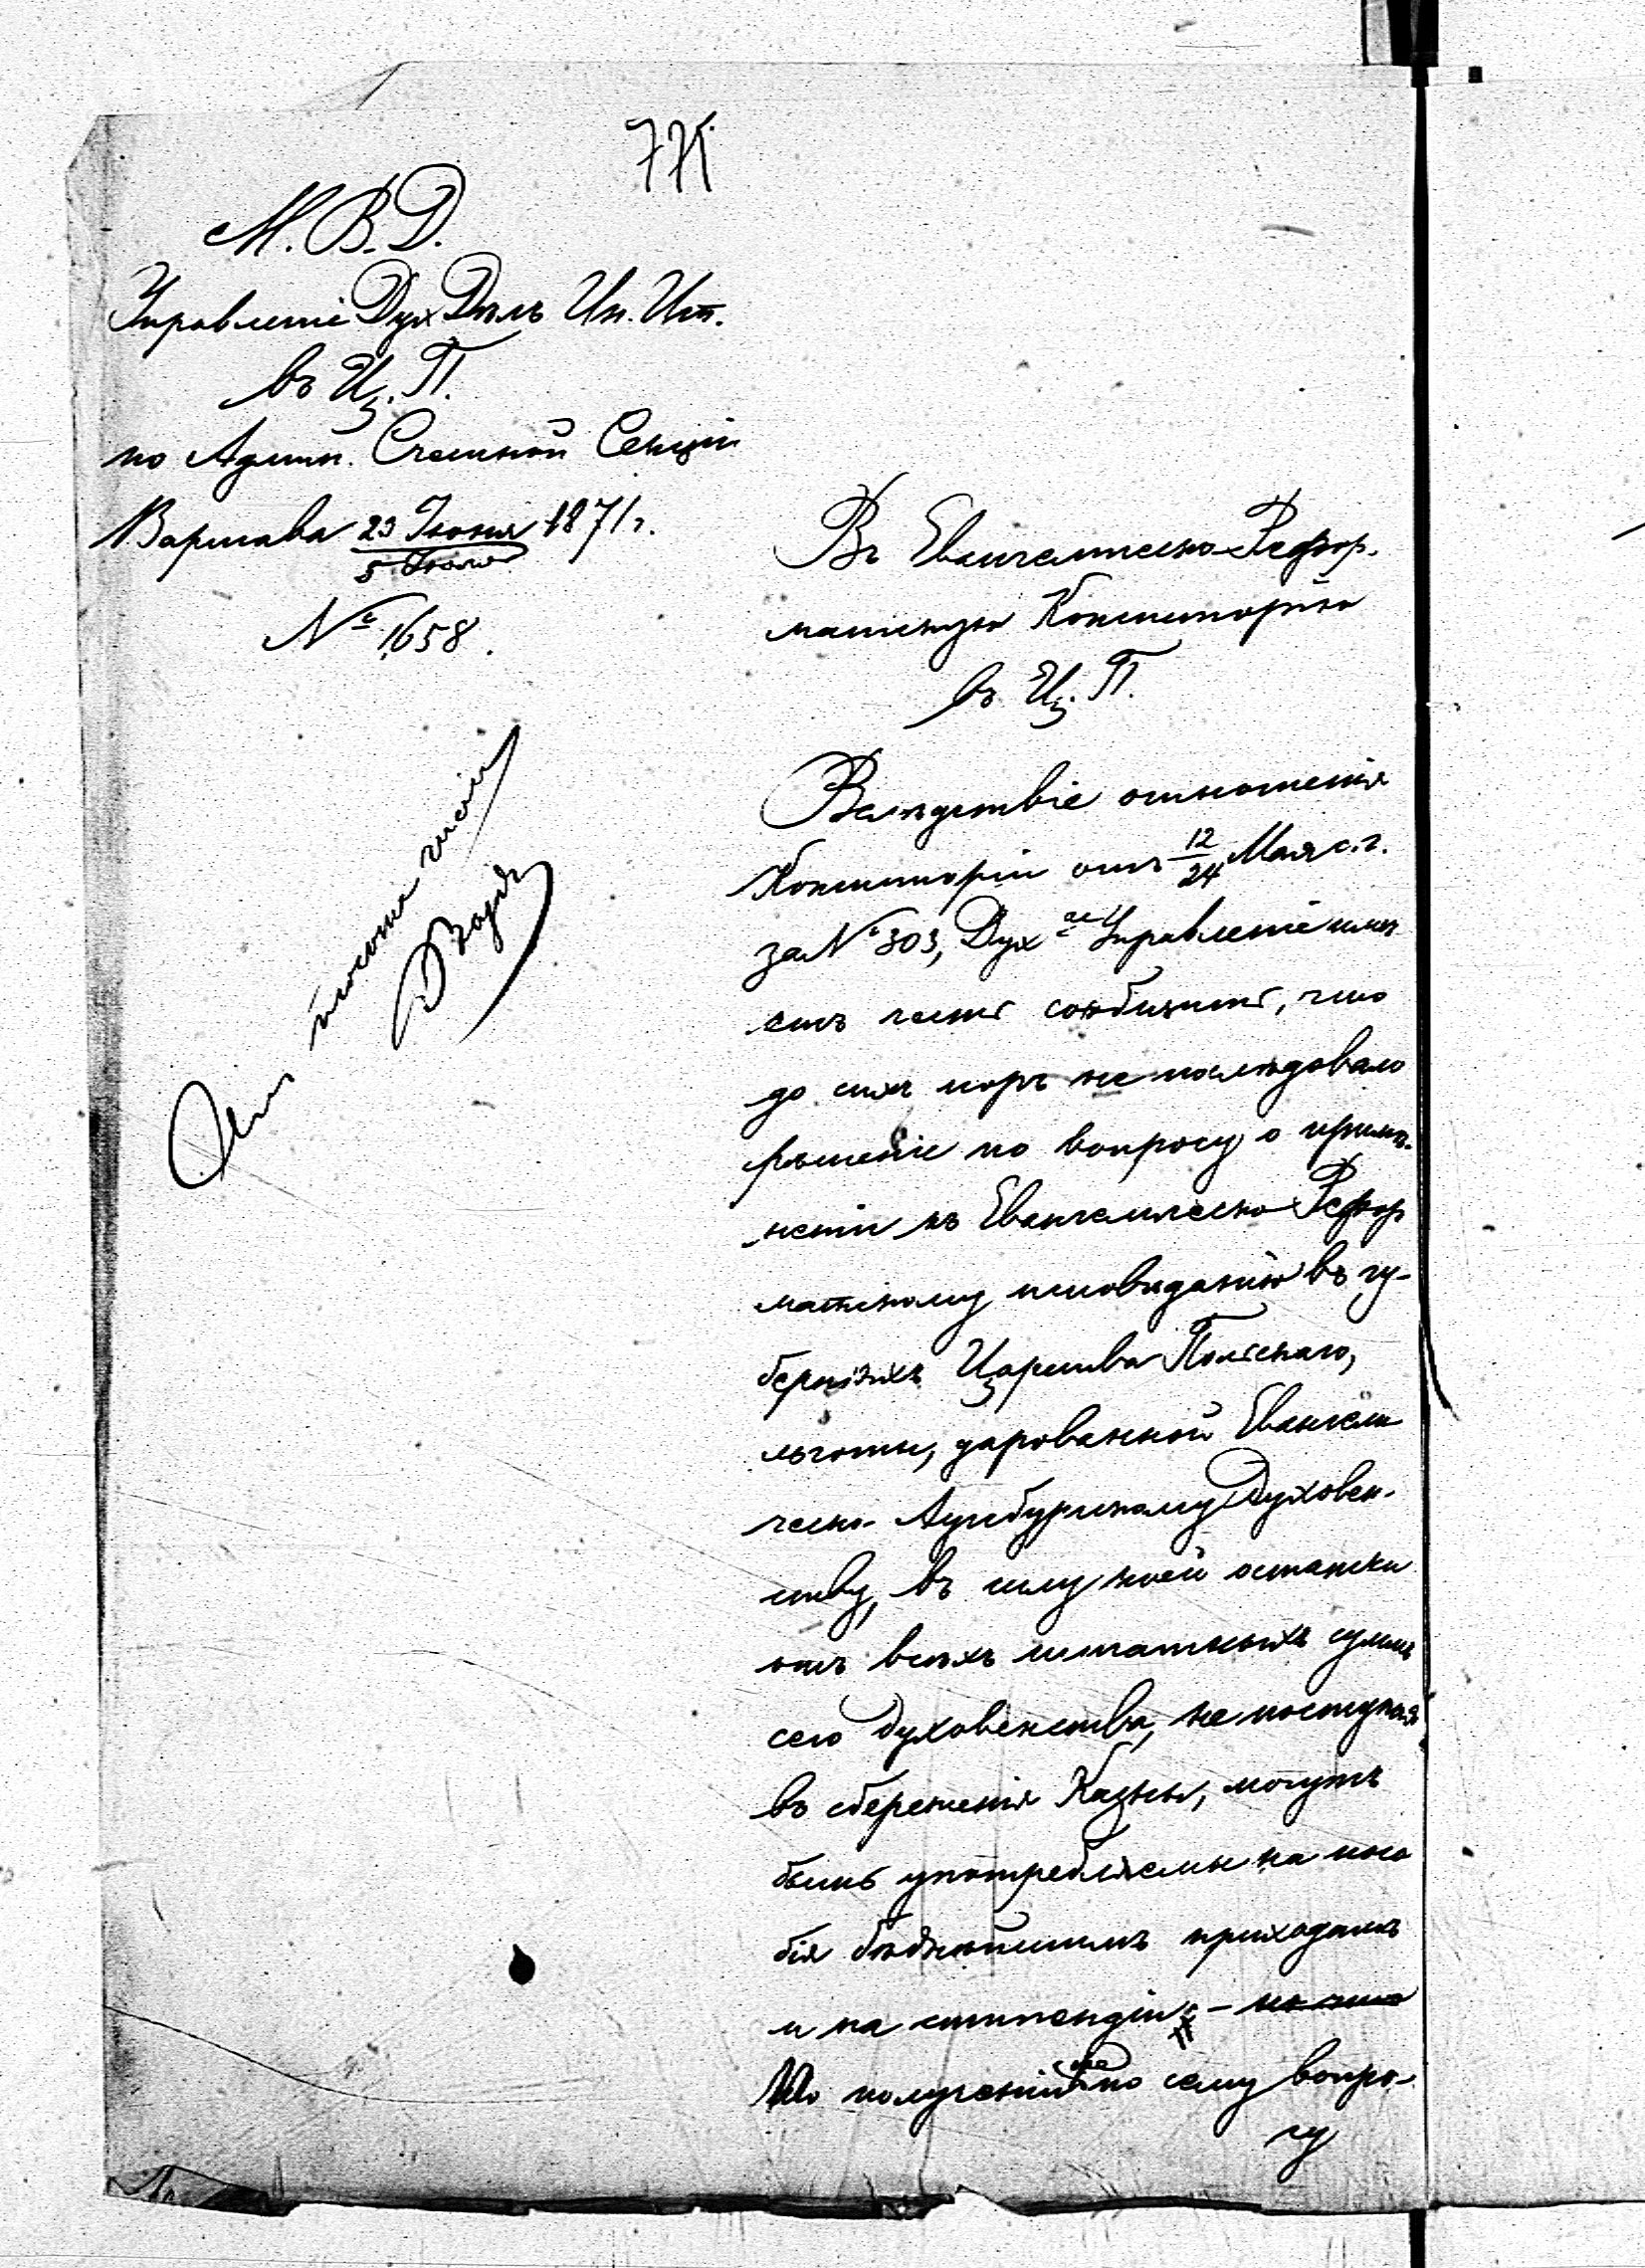 77
М. В. Д.
Управленіе Дух Дѣлъ Ин. Исп.
въ Ц. П.
по Админ. Счетной Секціи
Варшава 23 Іюня / 5 Іюля 1871 г.
№ 1658.
Въ Евангелическо-Рефор-
матскую Консисторію
въ Ц. П.
Вслѣдствіе отношенія
Консисторіи отъ 12/24 Мая с. г.
за № 303, Дух ое Управленіе имѣ
етъ честь сообщить, что
до сихъ поръ не послѣдовало
рѣшеніе по вопросу о примѣ-
неніи къ Евангелическо-Рефор
матскому исповѣданію въ гу-
берніяхъ Царства Польскаго,
льготы, дарованной Евангели
ческо-Аугсбургскому Духовен-
ству, въ силу коей остатки
отъ всѣхъ штатныхъ суммъ
сего духовенства, не поступая
въ сбереженія Казны, могутъ
быть употребляемы на посо
бія бѣднѣйшимъ приходамъ
и на стипендіи; -
По полученіи же по сему вопро-
су